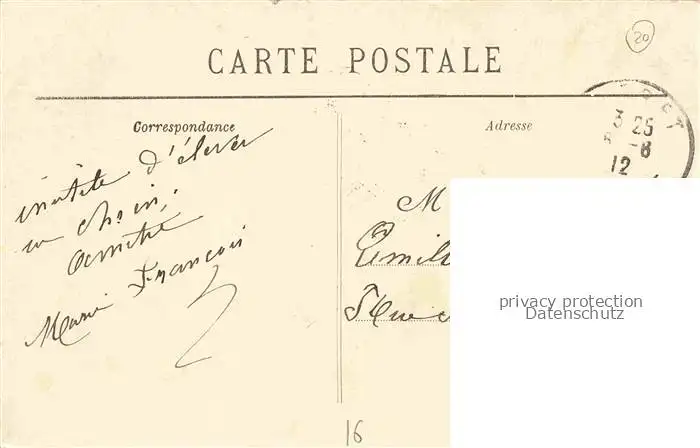 20
CARTE POSTALE
Correspondance
Adresse
inutile d'élever
un chien,
amitié
Marie François
3 25
-8
12
M
Emil
Rue
privacy protection
Datenschutz
16